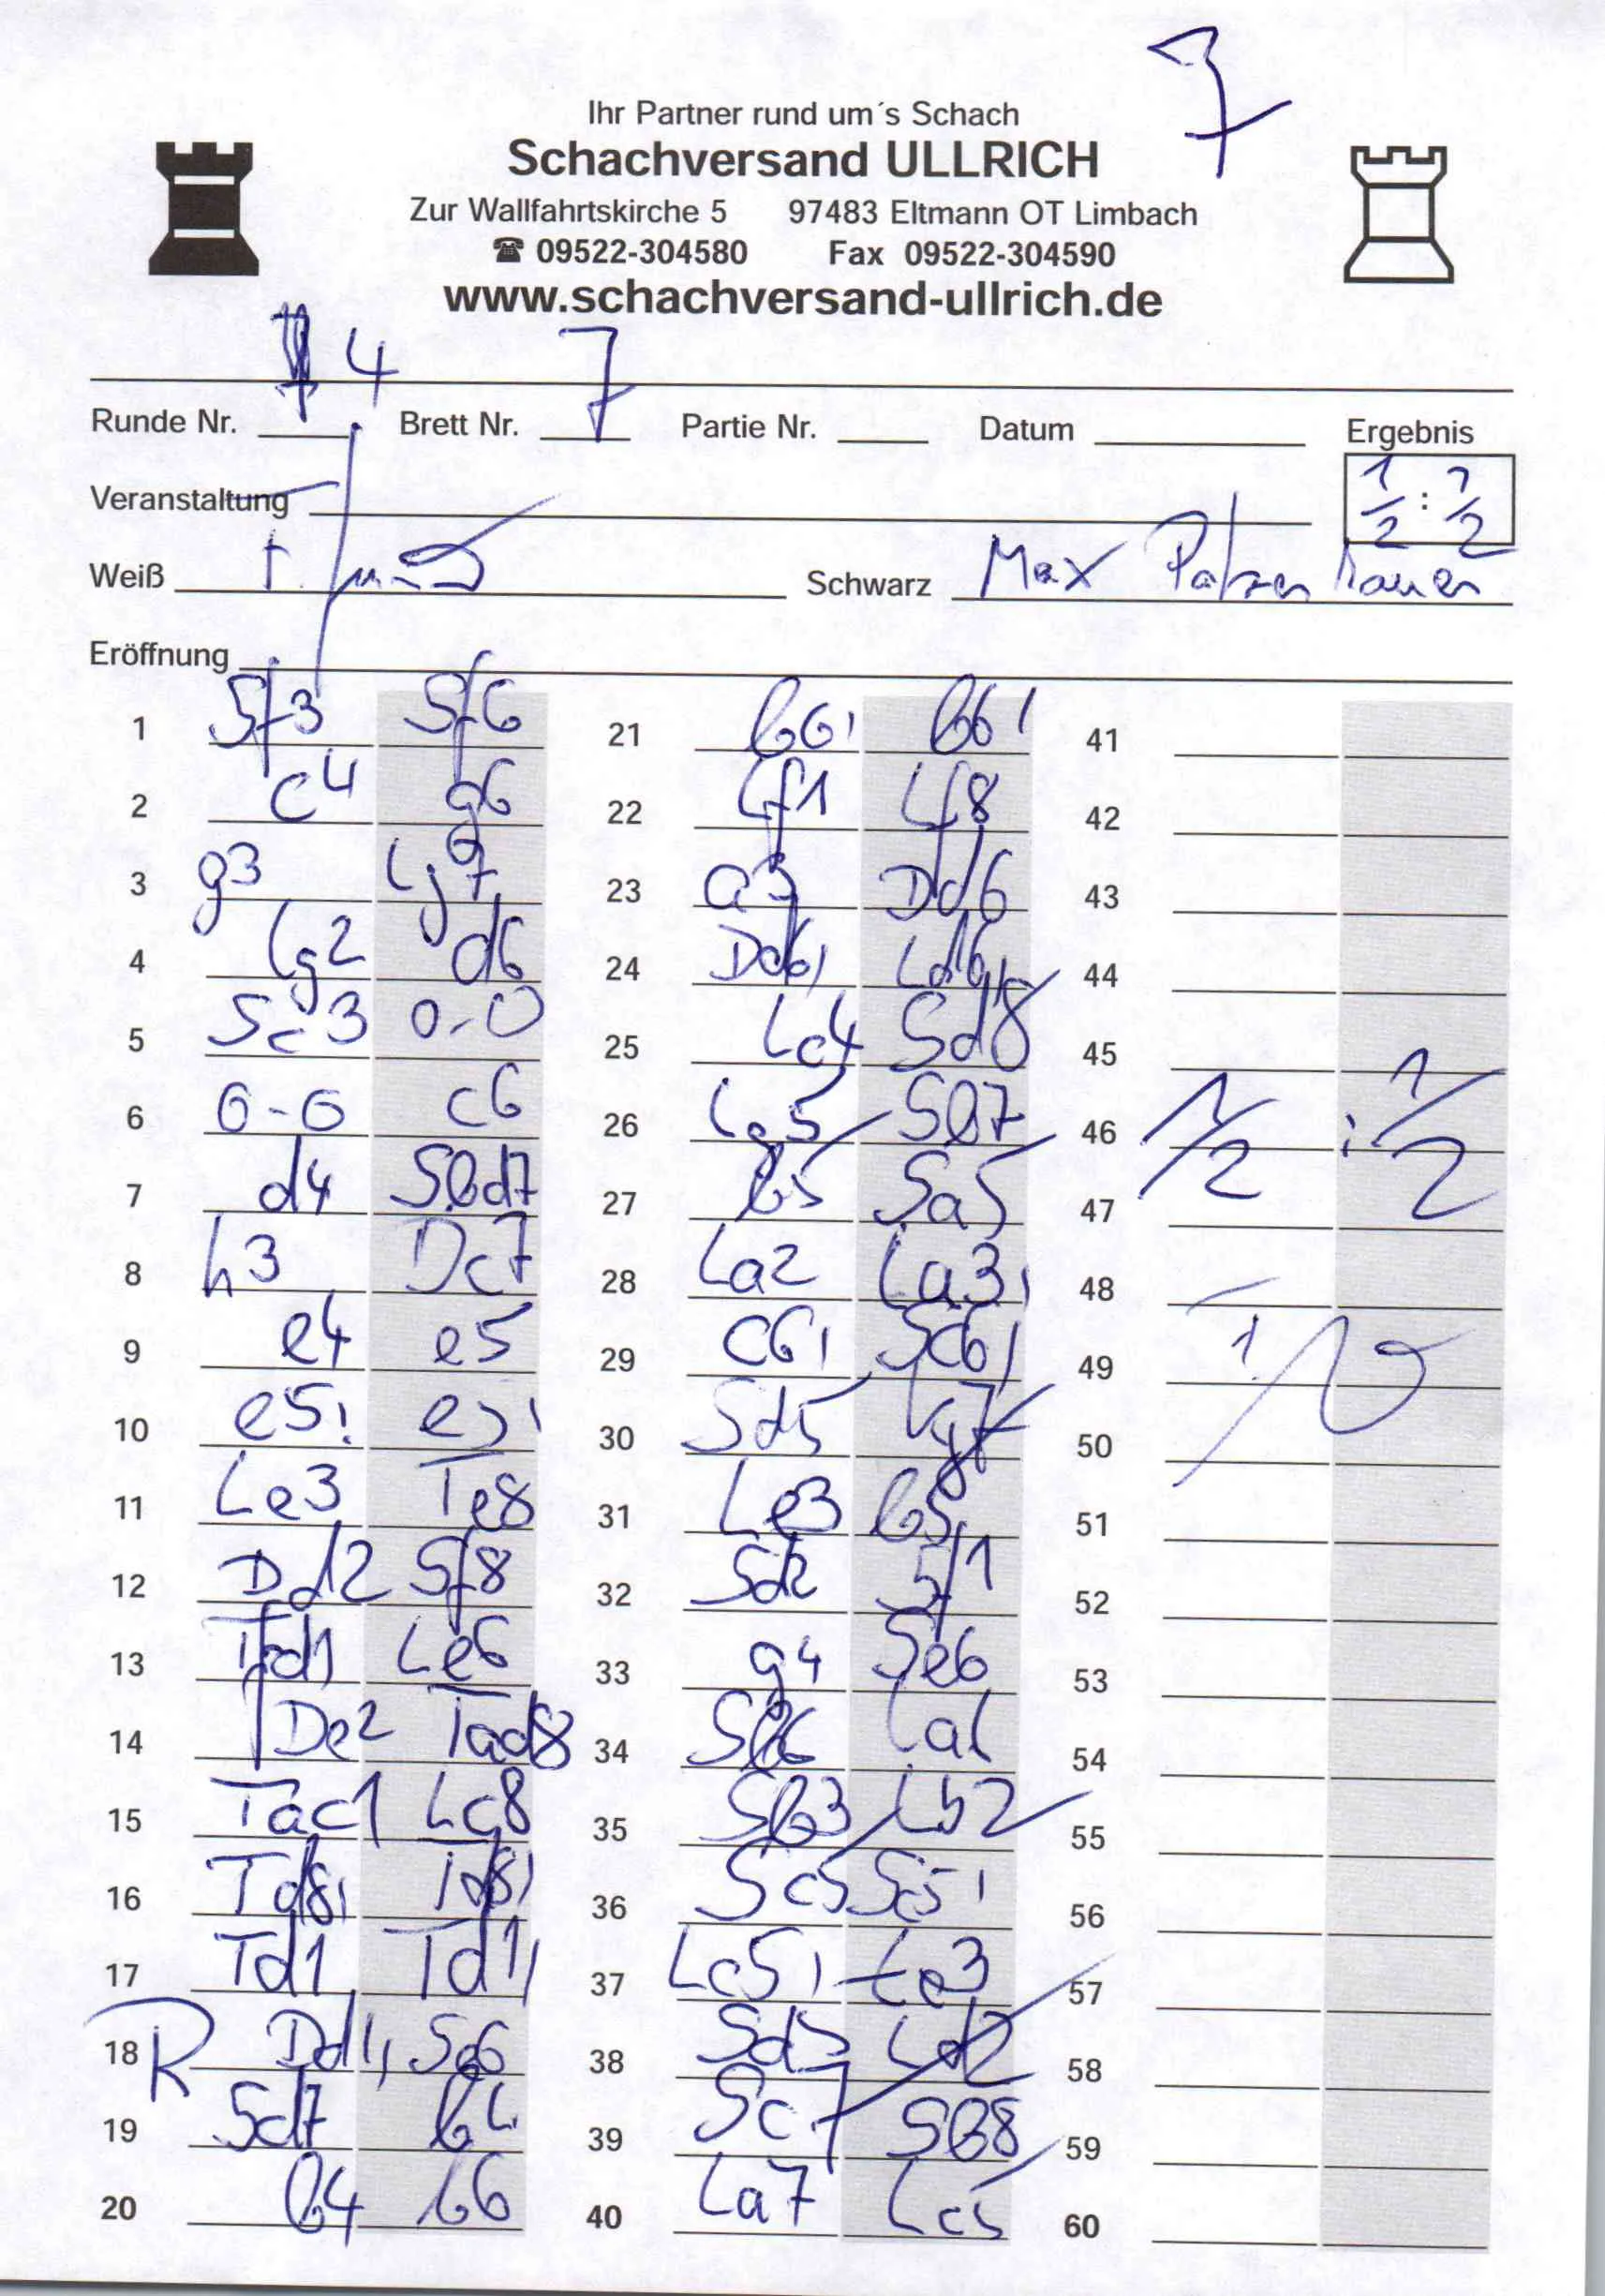 7
Ihr Partner rund um´s Schach
Schachversand ULLRICH
Zur Wallfahrtskirche 5 97483 Eltmann OT Limbach
☎ 09522-304580 Fax 09522-304590
www.schachversand-ullrich.de
Runde Nr. 4 Brett Nr. 7 Partie Nr. Datum Ergebnis
Veranstaltung 1/2 : 1/2
Weiß Schwarz Max
Eröffnung
1 Sf3 Sf6 21 b6, b6, 41
2 c4 g6 22 Lf1 Lf8 42
3 g3 Lg7 23 a3 Dd6 43
4 Lg2 d6 24 Dd6, Ld6, 44
5 Sc3 0-0 25 Lc4 Sd8 45
6 0-0 c6 26 Lg5 Sb7 46 1/2 : 1/2
7 d4 Sbd7 27 b5 Sa5 47
8 h3 Dc7 28 La2 La3, 48
9 e4 e5 29 c6, Sc6, 49
10 e5, e5, 30 Sd5 Kg7 50
11 Le3 Te8 31 Le3 b5 51
12 Dd2 Sf8 32 Sd2 52
13 Tfd1 Le6 33 g4 Se6 53
14 De2 Tad8 34 Sb6 54
15 Tac1 Lc8 35 Sb3 Lb2 55
16 Td8, Td8, 36 Sc5 Sc5, 56
17 Td1 Td1, 37 Lc5, 57
18 R Dd1, Se6 38 Sd5 Ld2 58
19 Sd7 39 Sc7 Sb8 59
20 b4 b6 40 La7 Lc5 60